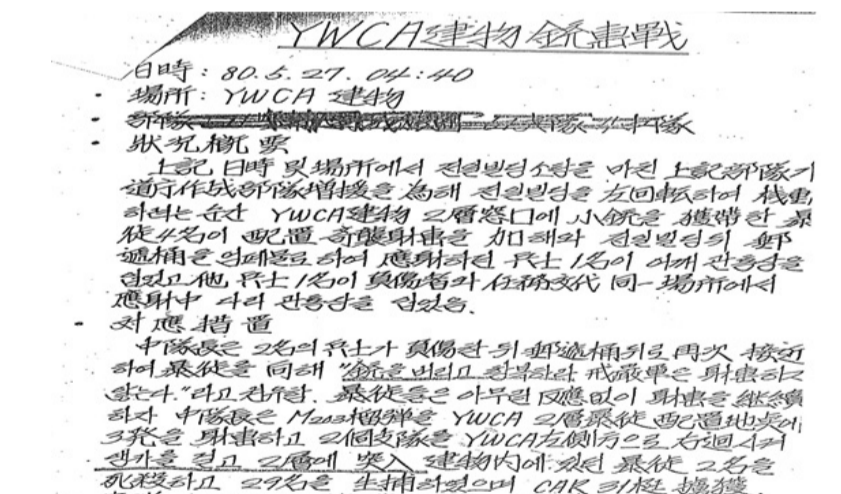 YWCA建物 銃擊戰
日時 : 80. 5. 27. 04:40
· 場所 : YWCA 建物
· 部隊
· 狀況槪要
上記 日時 및 場所에서 전일빌딩소탕을 마친 上記部隊가
道庁作戰部隊增援을 為해 전일빌딩을 左回転하여 機動
하려는 순간 YWCA建物 2層窓口에 小銃을 獲帶한 暴
徒4名이 配置 奇襲射擊을 加해와 전일빌딩뒤 郵
遞桶을 엄폐물로 하여 應射하던 兵士 1名이 어깨 관통상을
입었고 他 兵士 1名이 負傷者와 任務交代 同一場所에서
應射中 다리 관통상을 입었음.
· 対應措置
中隊長은 2名의 兵士가 負傷한 뒤 郵遞桶뒤로 再次 接近
하여 暴徒을 向해 "銃을 버리고 항복하라 戒嚴軍은 射擊하지
않는다."라고 권유함. 暴徒들은 아무런 反應없이 射擊을 繼續
하자 中隊長은 M203榴弾을 YWCA 2層暴徒 配置地点에
3発을 射擊하고 2個支隊을 YWCA左側方으로 右迴시켜
2層에 突入 建物内에 있던 暴徒 2名을
死殺하고 29名을 生捕하였으며 CAR 31梃 擄獲